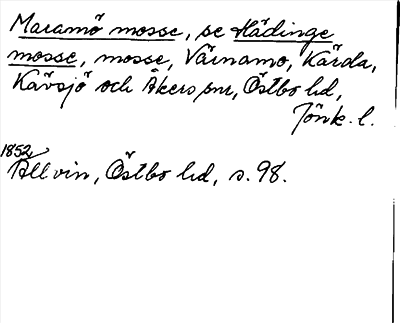 Maramö mosse, se Hädinge
mosse, mosse, Värnamo, Kärda,
Kävsjö och Åkers snr, Östbo hd,
Jönk. l.
1852
Allvin, Östbo hd, s. 98.